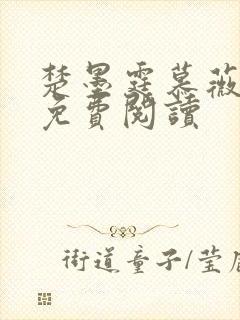 楚墨霆慕薇
免費閱讀
街道童子/莹